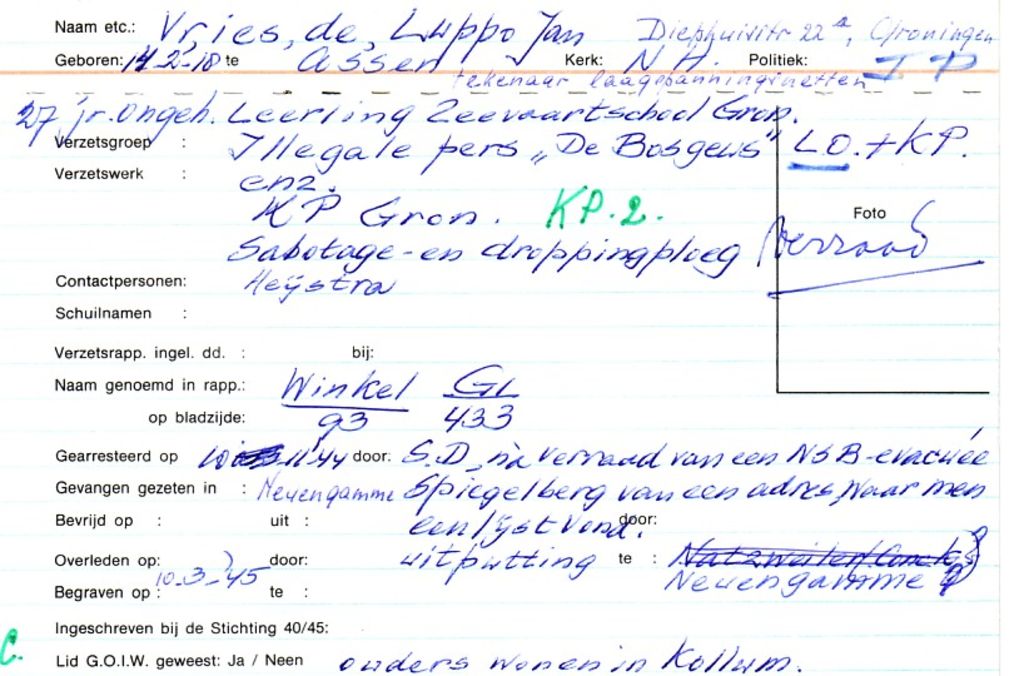 Naam etc.: Vries, de, Luppo Jan Diephuisstr 22a, Groningen
Geboren: 14-2-18 te Assen Kerk: N.H. Politiek:
tekenaar laagspanningsnetten
27 jr. ongeh. Leerling Zeevaartschool Gron.
Verzetsgroep : Illegale pers „De Bosgeus" L.O. + KP.
Verzetswerk : enz.
KP Gron. KP. 2. Foto
Sabotage- en droppingploeg verraad
Contactpersonen: Heijstra
Schuilnamen :
Verzetsrapp. ingel. dd. : bij:
Naam genoemd in rapp.: Winkel GL
op bladzijde: 93 433
Gearresteerd op 10-11-44 door: S.D. na verraad van een NSB-evacuée
Gevangen gezeten in : Neuengamme Spiegelberg van een adres, waar men
Bevrijd op : uit : een lijst vond. door:
Overleden op: door: uitputting te : Natzweiler
Begraven op : 10-3-'45 te : Neuengamme
Ingeschreven bij de Stichting 40/45:
C. Lid G.O.I.W. geweest: Ja / Neen ouders wonen in Kollum.